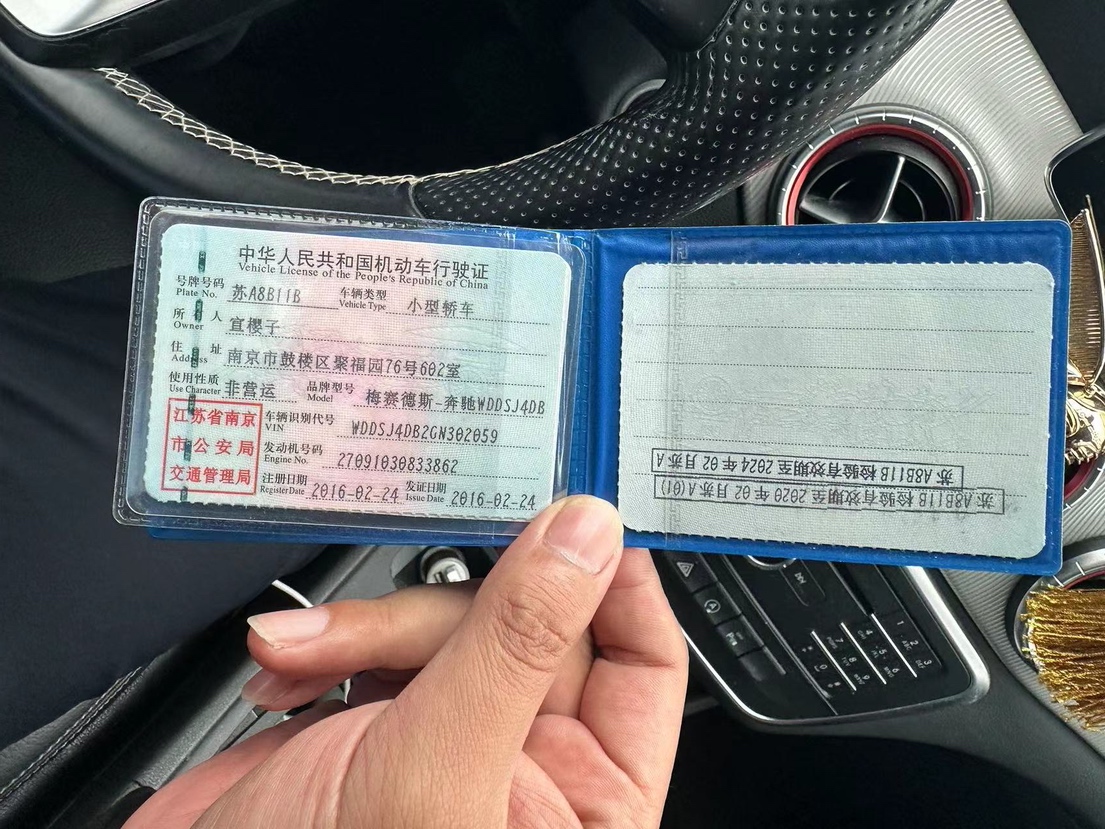 中华人民共和国机动车行驶证
Vehicle License of the People's Republic of China
号牌号码 苏A8B11B 车辆类型 小型轿车
Plate No. Vehicle Type
所 有 人 宣樱子
Owner
住 址 南京市鼓楼区聚福园76号602室
Address
使用性质 非营运 品牌型号 梅赛德斯-奔驰WDDSJ4DB
Use Character Model
江苏省南京
市公安局
交通管理局
车辆识别代号 WDDSJ4DB2GN302059
VIN
发动机号码 27091030833862
Engine No.
注册日期 2016-02-24 发证日期 2016-02-24
Register Date Issue Date
苏A8B11B 检验有效期至 2020年02月苏A(01)
苏A8B11B 检验有效期至 2024年02月苏A
1 2 3
4 5 6
7 8 9
* 0 #